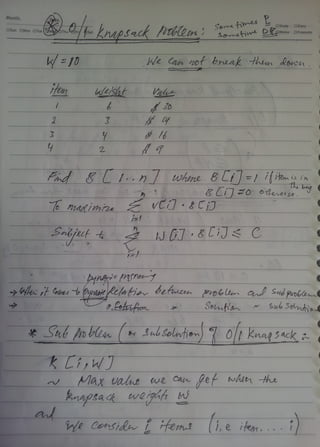 0/1 Knapsack Problem:
sometimes P
sometimes DP
W = 10 We can not break them down.
item Weight Value
1 6 $ 30
2 3 $ 14
3 4 $ 16
4 2 $ 9
Find S [1...n] where S[i] = 1 if item is in the bag
S[i] = 0 otherwise
To maximize Σ v[i] · S[i]
n
i=1
Subject to Σ W[i] · S[i] ≤ C
n
i=1
dynamic
→ When it comes to Relation between problem and subproblem
→ " Solution " subsolution
* Sub problem (or subsolution) of 0/1 Knapsack:
K [i, W]
~ Max value we can get when the
Knapsack weights W
and
We consider i items (i.e item.... i)